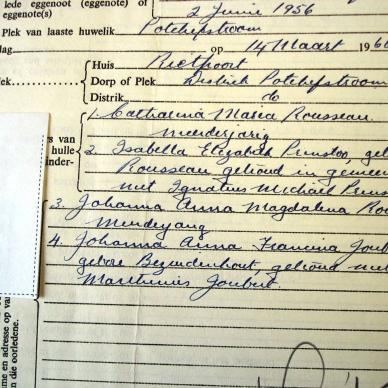 lede eggenoot (eggenote) of
eggenote(s) 2 Junie 1956
Plek van laaste huwelik Potchefstroom
op 14 Maart 196
Huis Rietpoort
Dorp of Plek Distrik Potchefstroom
Distrik do
1. Catharina Maria Rousseau
meerderjarig
2. Isabella Elizabeth Prinsloo, geb
Rousseau getroud in gemeen
met Ignatius Michael Prins
3. Johanna Anna Magdalena Rou
Meerderjarig
4. Johanna Anna Francina Joub
gebore Bezuidenhout, getroud met
Marthinus Joubert.
s van
hulle
inder-
me en adres op van
an die oorledene.